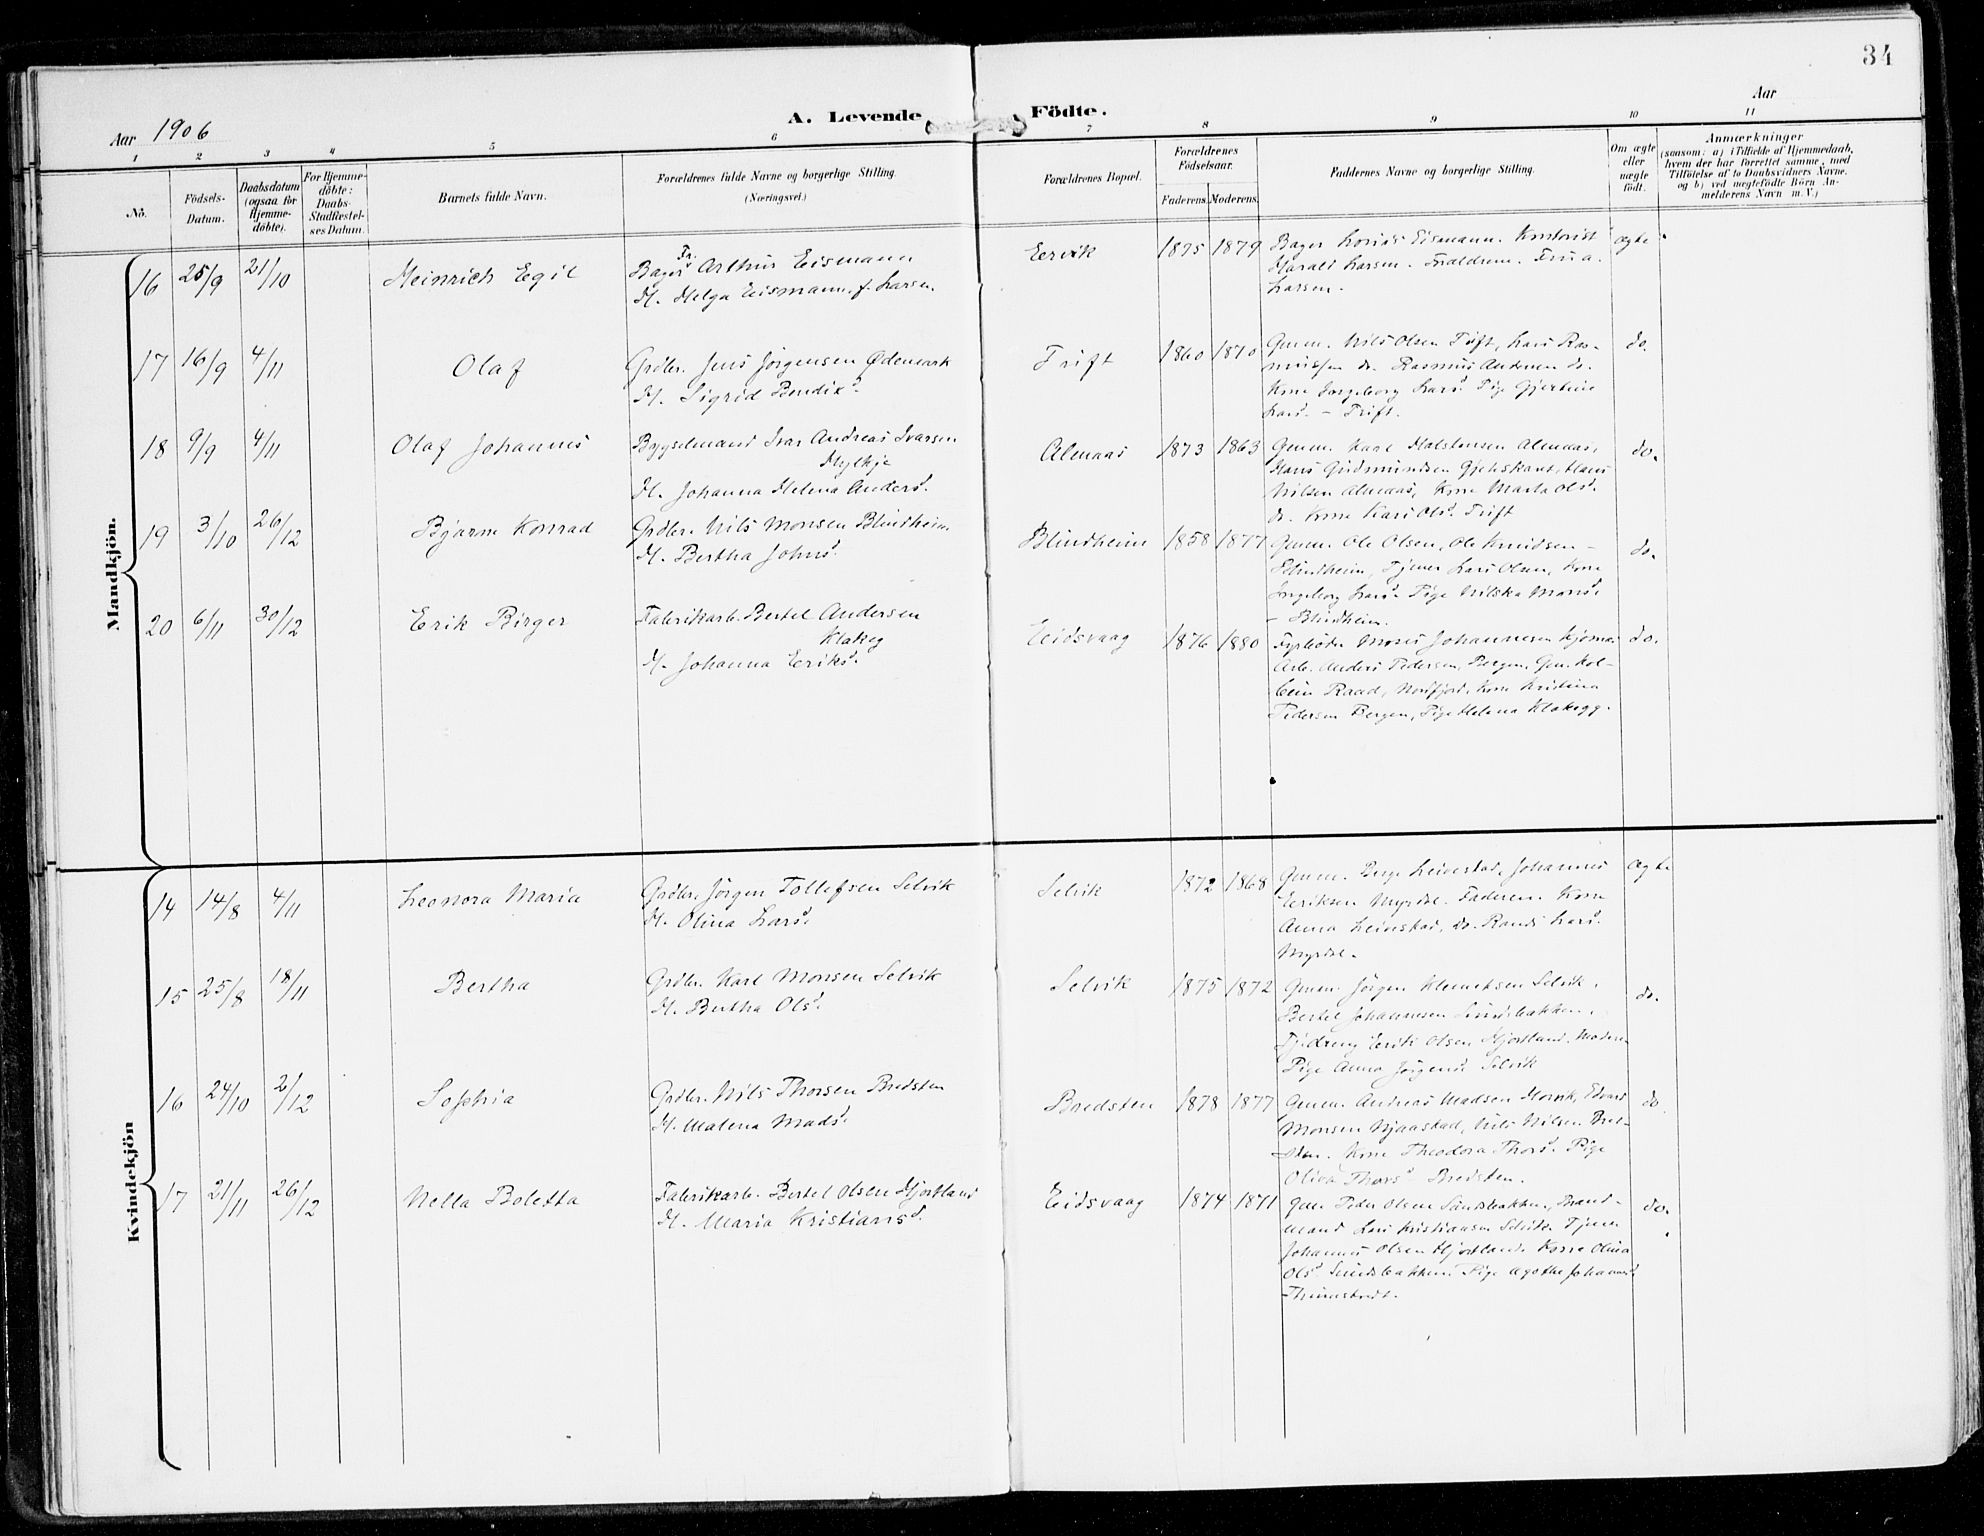 34
A. Levende Födte.
Aar 1906
Aar
1 2 3 4 5 6 7 8 9 10 11
No.
Födsels-
Datum.
Daabsdatum
(ogsaa for
Hjemme-
döbte).
For Hjemme-
döbte:
Daabs-
Stadfæstel-
ses Datum.
Barnets fulde Navn.
Forældrenes fulde Navne og borgerlige Stilling.
(Næringsvei.)
Forældrenes Bopæl.
Forældrenes
Födselsaar.
Faderens. Moderens.
Faddernes Navne og borgerlige Stilling.
Om ægte
eller
uægte
födt.
Anmærkninger
(saasom: a) i Tilfælde af Hjemmedaab,
hvem der har forrettet samme, med
Tilföielse af to Daabsvidners Navne,
og b) ved uægtefödte Börn An-
melderens Navn m. V.)
Mandkjön.
16 25/9 21/10 Heinrich Egil
Fa. Bager Arthur Eismann
H. Helga Eismann f. Larsen.
Eervik 1875 1879
Bager Eismann. Kontorist
Harald Larsen. Fru a.
Larsen.
ægte
17 16/9 4/11 Olaf
Grdbr. Jens Jörgensen Ødemark
H. Sigrid Bendixd.
Trift 1860 1870
Gmm. Nils Olsen Trift, Lars Ras-
mussen do. Rasmus Andersen do.
Kone Ingeborg Larsd. Pige Gjertine
Larsd. – Trift.
do.
18 9/9 4/11 Olaf Johannes
Bygselmand Ivar Andreas Ivarsen
Hylkje
H. Johanna Helena Andersd.
Almaas 1873 1863
Gmm. Karl Halstensen Almaas,
Hans Gudmundsen Hans
Nilsen Almaas, Kone Marta Olsd.
do. Kone Kari Olsd. Trift
do.
19 3/10 26/12 Bjarne Konrad
Grdbr. Nils Monsen Blindheim
H. Bertha Johnsd.
Blindheim 1858 1877
Gmm. Ole Olsen, Ole Knudsen –
Blindheim, Tjener Lars Olsen, Kone
Ingeborg Larsd. Pige Nilska Monsd.
– Blindheim.
do.
20 6/11 30/12 Erik Birger
Fabrikarb. Bertel Andersen
Klakeg
H. Johanna Eriksd.
Eidsvaag 1876 1880
Fyrböder Moses Johannesen
Arb. Anders Pedersen, Bergen, Gm. Kol-
bein Raad, Nordfjord, Kone Kristina
Pedersen Bergen, Pige Helena Klakegg.
do.
Kvindekjön
14 14/8 4/11 Leonora Maria
Grdbr. Jörgen Tollefsen Selvik
H. Olina Larsd.
Selvik 1872 1868
Gmm. Berge Leivestad, Johannes
Eriksen Myrdal. Faderen. Kone
Anna Leivestad, do. Randi Larsd.
Myrdal.
ægte
15 25/8 18/11 Bertha
Grdbr. Karl Monsen Selvik
H. Bertha Olsd.
Selvik 1875 1872
Gmm. Jörgen Klemetsen Selvik,
Bertel Johannesen Sundsbakken,
Tjdreng Erik Olsen Hjortland. Moderen
Pige Anna Jörgensd. Selvik
do.
16 24/10 2/12 Sophia
Grdbr. Nils Thorsen Bredsten
H. Malena Madsd.
Bredsten 1878 1877
Gmm. Andreas Madsen Horvik, Edvard
Monsen Njaastad, Nils Nilsen Bred-
sten. Kone Theodora Thorsd. Pige
Oliva Thorsd – Bredsten.
do
17 21/11 26/12 Nella Boletta
Fabrikarb. Bertel Olsen Hjortland
H. Maria Kristiansd.
Eidsvaag 1874 1871
Gm. Peder Olsen Sundsbakken, Brand-
mand Lars Kristiansen Selvik. Tjener
Johannes Olsen Hjortland. Kone Olina
Olsd. Sundsbakken. Pige Agothe Johannesd.
do.